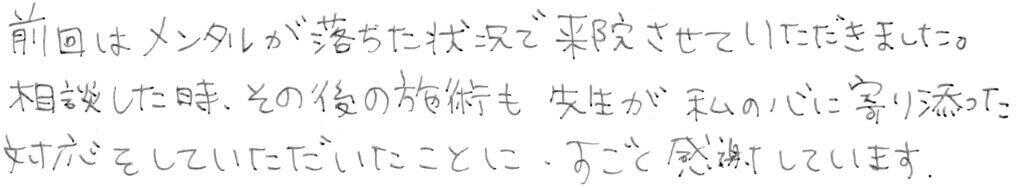 前回はメンタルが落ちた状況で来院させていただきました。
相談した時、その後の施術も 先生が 私の心に寄り添った
対応をしていただいたことに、すごく感謝しています.